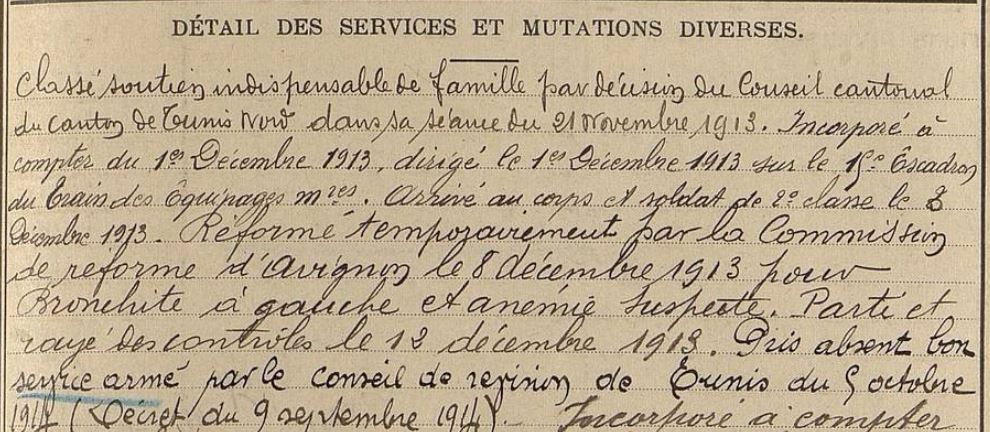 DÉTAIL DES SERVICES ET MUTATIONS DIVERSES.
Classé soutien indispensable de famille par décision du Conseil cantonal
du canton de Tunis Nord dans sa séance du 21 Novembre 1913. Incorporé à
compter du 1er Décembre 1913, dirigé le 1er Décembre 1913 sur le 15e Escadron
du Train des Équipages mres. Arrivé au corps et soldat de 2e classe le 3
Décembre 1913. Réformé temporairement par la Commission
de réforme d'Avignon le 8 décembre 1913 pour
Bronchite à gauche et anémie suspecte. Parti et
rayé des contrôles le 12 décembre 1913. Pris absent bon
service armé par le conseil de revision de Tunis du 5 octobre
1914 (Décret du 9 septembre 1914). Incorporé à compter